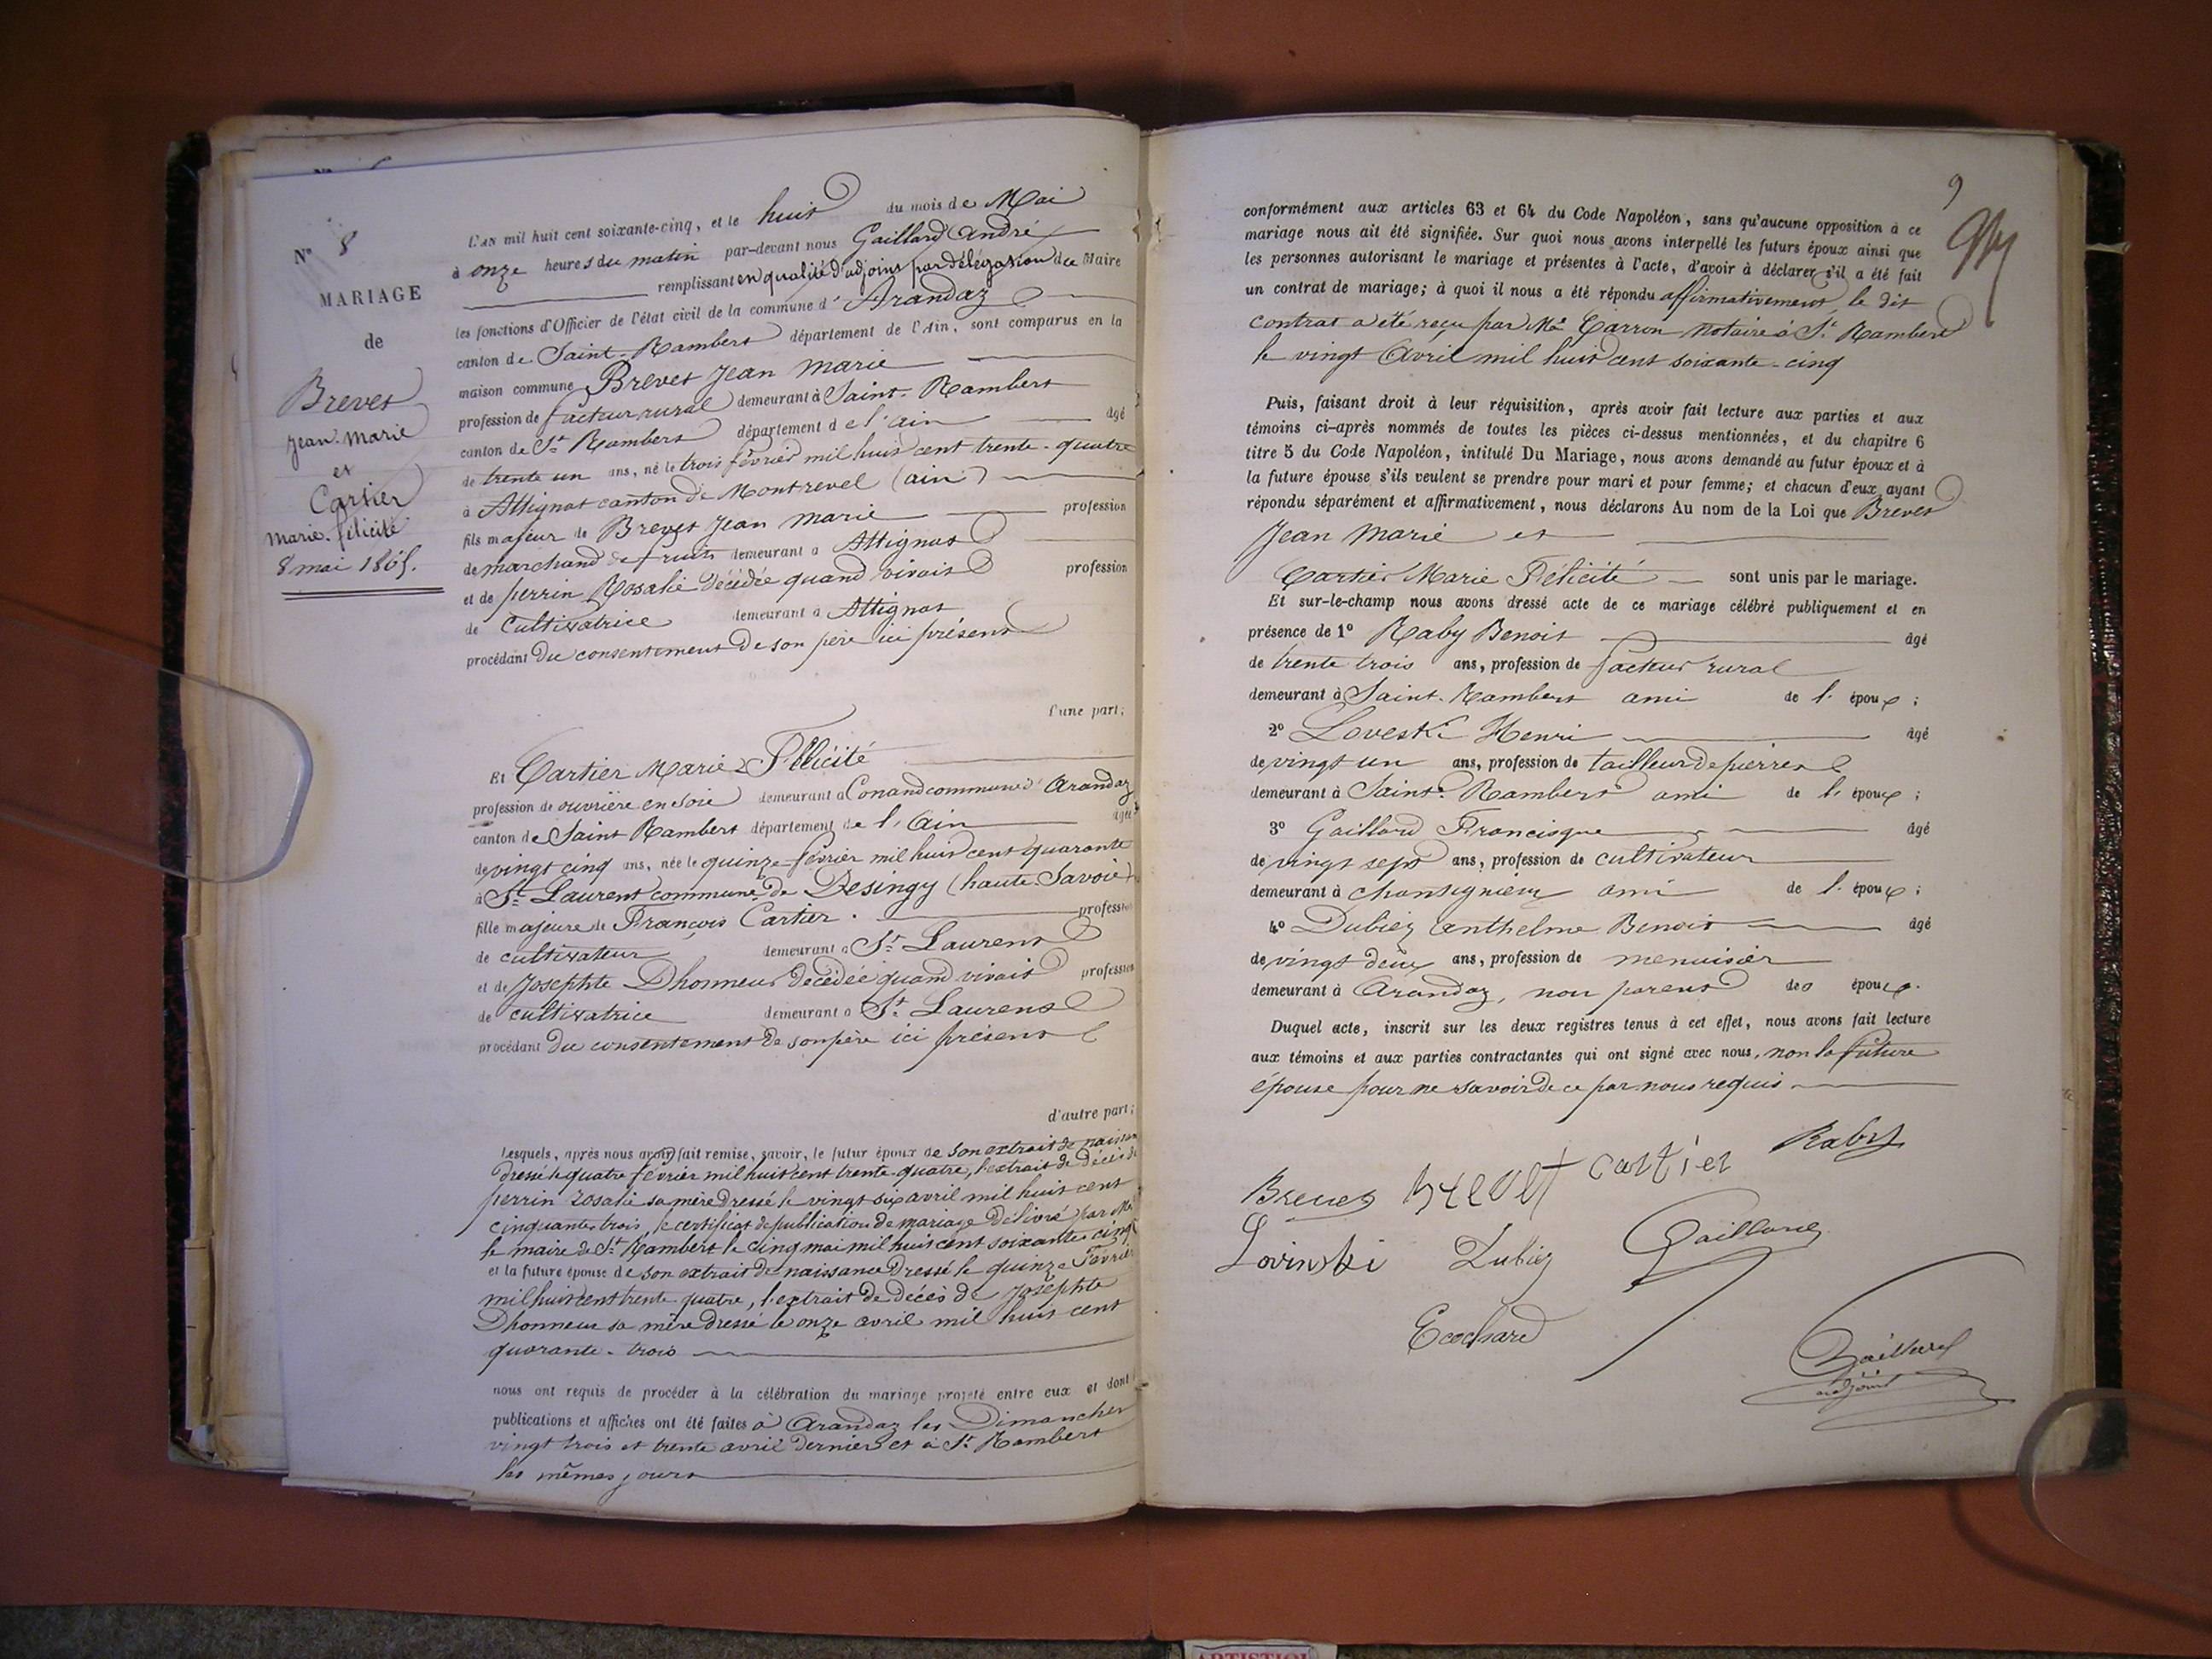 N° 8
MARIAGE
de
Brevet
Jean-Marie
et
Cartier
Marie-félicité
8 mai 1865.
L'AN mil huit cent soixante-cinq, et le huit du mois de Mai
à onze heures du matin par-devant nous Gaillard André
remplissant en qualité d'adjoint par délégation du Maire
les fonctions d'Officier de l'état civil de la commune d'Arandaz
canton de Saint-Rambert département de l'Ain, sont comparus en la
maison commune Brevet Jean Marie
profession de facteur rural demeurant à Saint-Rambert
canton de St Rambert département de l'ain âgé
de trente un ans, né le trois février mil huit cent trente-quatre
à Attignat canton de Montrevel (ain)
fils majeur de Brevet Jean Marie profession
de marchand de fruits demeurant à Attignat
et de perrin Rosalie décédée quand vivait profession
de cultivatrice demeurant à Attignat
procédant du consentement de son père ici présent
d'une part;
Et Cartier Marie Félicité
profession de ouvrière en soie demeurant à Conand commune d'Arandaz
canton de Saint Rambert département de l'Ain âgée
de vingt cinq ans, née le quinze février mil huit cent quarante
à St Laurent commune de Desingy (haute Savoie)
fille majeure de François Cartier. profession
de cultivateur demeurant à St Laurent
et de Josephte Dhonneur décédée quand vivait profession
de cultivatrice demeurant à St Laurent
procédant du consentement de son père ici présent
d'autre part;
Lesquels, après nous avoir fait remise, savoir, le futur époux de son extrait de naissan
dressé le quatre février mil huit cent trente-quatre, l'extrait de décès de
perrin rosalie sa mère dressé le vingt six avril mil huit cent
cinquante trois, le certificat de publication de mariage délivré par Mr
le maire de St Rambert le cinq mai mil huit cent soixante cinq
et la future épouse de son extrait de naissance dressé le quinze Favrier
mil huit cent trente quatre, l'extrait de décès de Josephte
Dhonneur sa mère dressé le onze avril mil huit cent
quarante-trois
nous ont requis de procéder à la célébration du mariage projeté entre eux et dont
publications et affiches ont été faites à Arandaz les Dimanches
vingt trois et trente avril dernier et à St Rambert
les mêmes jours
9
conformément aux articles 63 et 64 du Code Napoléon, sans qu'aucune opposition à ce
mariage nous ait été signifiée. Sur quoi nous avons interpellé les futurs époux ainsi que
les personnes autorisant le mariage et présentes à l'acte, d'avoir à déclarer s'il a été fait
un contrat de mariage; à quoi il nous a été répondu affirmativement, le dit
contrat a été reçu par Me Carron notaire à St Rambert
le vingt Avril mil huit cent soixante-cinq
Puis, faisant droit à leur réquisition, après avoir fait lecture aux parties et aux
témoins ci-après nommés de toutes les pièces ci-dessus mentionnées, et du chapitre 6
titre 5 du Code Napoléon, intitulé Du Mariage, nous avons demandé au futur époux et à
la future épouse s'ils veulent se prendre pour mari et pour femme; et chacun d'eux ayant
répondu séparément et affirmativement, nous déclarons Au nom de la Loi que Brevet
Jean Marie et
Cartier Marie Félicité sont unis par le mariage.
Et sur-le-champ nous avons dressé acte de ce mariage célébré publiquement et en
présence de 1° Raby Benoit âgé
de trente trois ans, profession de facteur rural
demeurant à Saint-Rambert ami de l'époux;
2° Loveski Henri âgé
de vingt un ans, profession de tailleur de pierres
demeurant à Saint-Rambert ami de l'époux;
3° Gaillard Francisque âgé
de vingt sept ans, profession de cultivateur
demeurant à chantignieux ami de l'époux;
4° Dubiez anthelme Benoit âgé
de vingt deux ans, profession de menuisier
demeurant à Arandaz, non parent des époux.
Duquel acte, inscrit sur les deux registres tenus à cet effet, nous avons fait lecture
aux témoins et aux parties contractantes qui ont signé avec nous, non la future
épouse pour ne savoir de ce par nous requis
Brevet brevet cartier Raby
Lovinski Dubiez Gaillard
Ecochard
Gaillard
adjoint